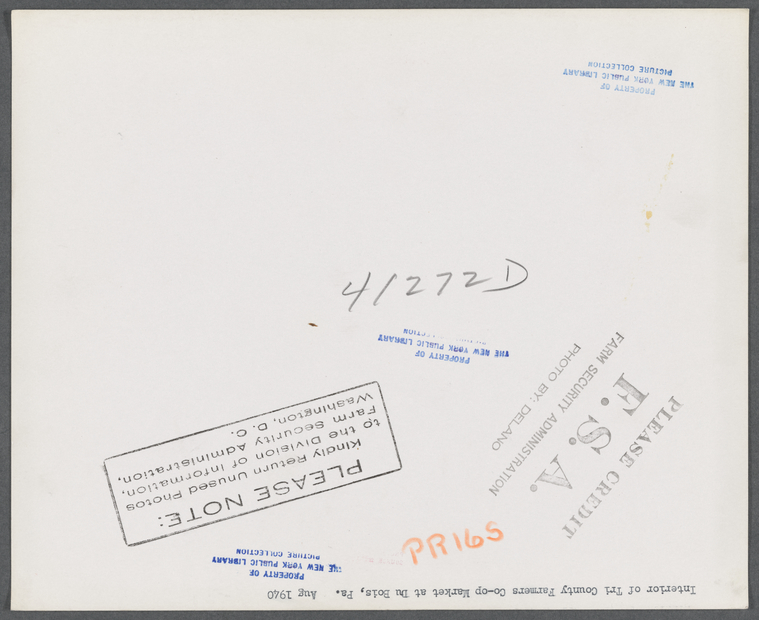 PROPERTY OF
THE NEW YORK PUBLIC LIBRARY
PICTURE COLLECTION
41272D
PROPERTY OF
THE NEW YORK PUBLIC LIBRARY
PLEASE CREDIT
F. S. A.
FARM SECURITY ADMINISTRATION
PHOTO BY: DELANO
PLEASE NOTE:
Kindly Return Unused Photos
to the Division of Information,
Farm Security Administration,
Washington, D. C.
PR165
PROPERTY OF
THE NEW YORK PUBLIC LIBRARY
PICTURE COLLECTION
Interior of Tri County Farmers Co-op Market at Du Bois, Pa. Aug 1940